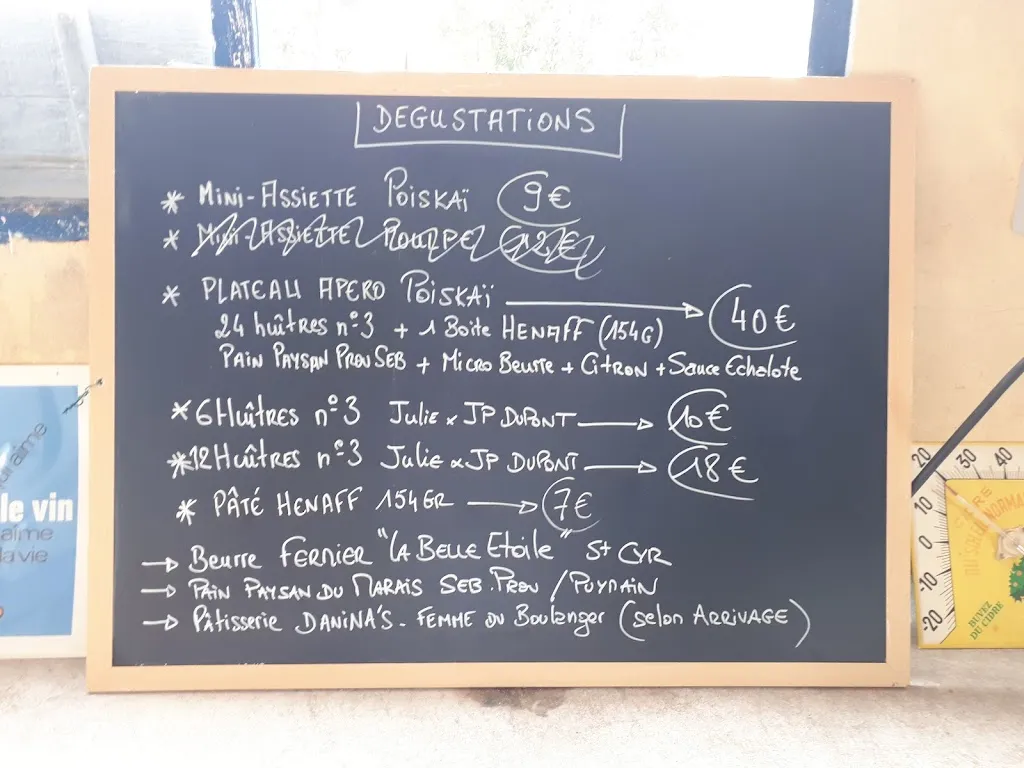 DEGUSTATIONS
* MINI-ASSIETTE POISKAÏ 9€
* MINI-ASSIETTE POULPE 12€
* PLATEAU APERO POISKAÏ → 40€
24 huîtres n°3 + 1 Boite HENAFF (154G)
PAIN PAYSAN PROU SEB + MICRO Beurre + CITRON + Sauce Echalote
* 6 Huîtres n°3 Julie & JP DUPONT → 10€
* 12 Huîtres n°3 Julie & JP DUPONT → 18€
* PÂTÉ HENAFF 154GR → 7€
→ Beurre FERMIER "LA BELLE ETOILE" St CYR
→ PAIN PAYSAN DU MARAIS SEB. PROU / PUYRAIN
→ Pâtisserie DANINA'S - FEMME DU Boulanger (selon ARRIVAGE)
le vin
aime
la vie
20 30 40
10
0
-10
-20
BUVEZ
DU CIDRE